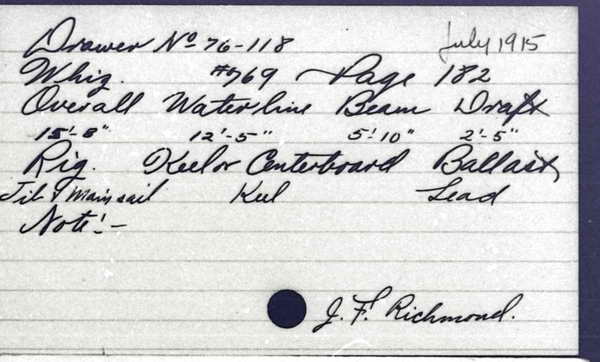 Drawer No 76-118 July 1915
Whiz. #769 Page 182
Overall Waterline Beam Draft
15'-8" 12'-5" 5'-10" 2'-5"
Rig. Keel or Centerboard Ballast
Jib & Mainsail Keel Lead
Note:-
J. F. Richmond.